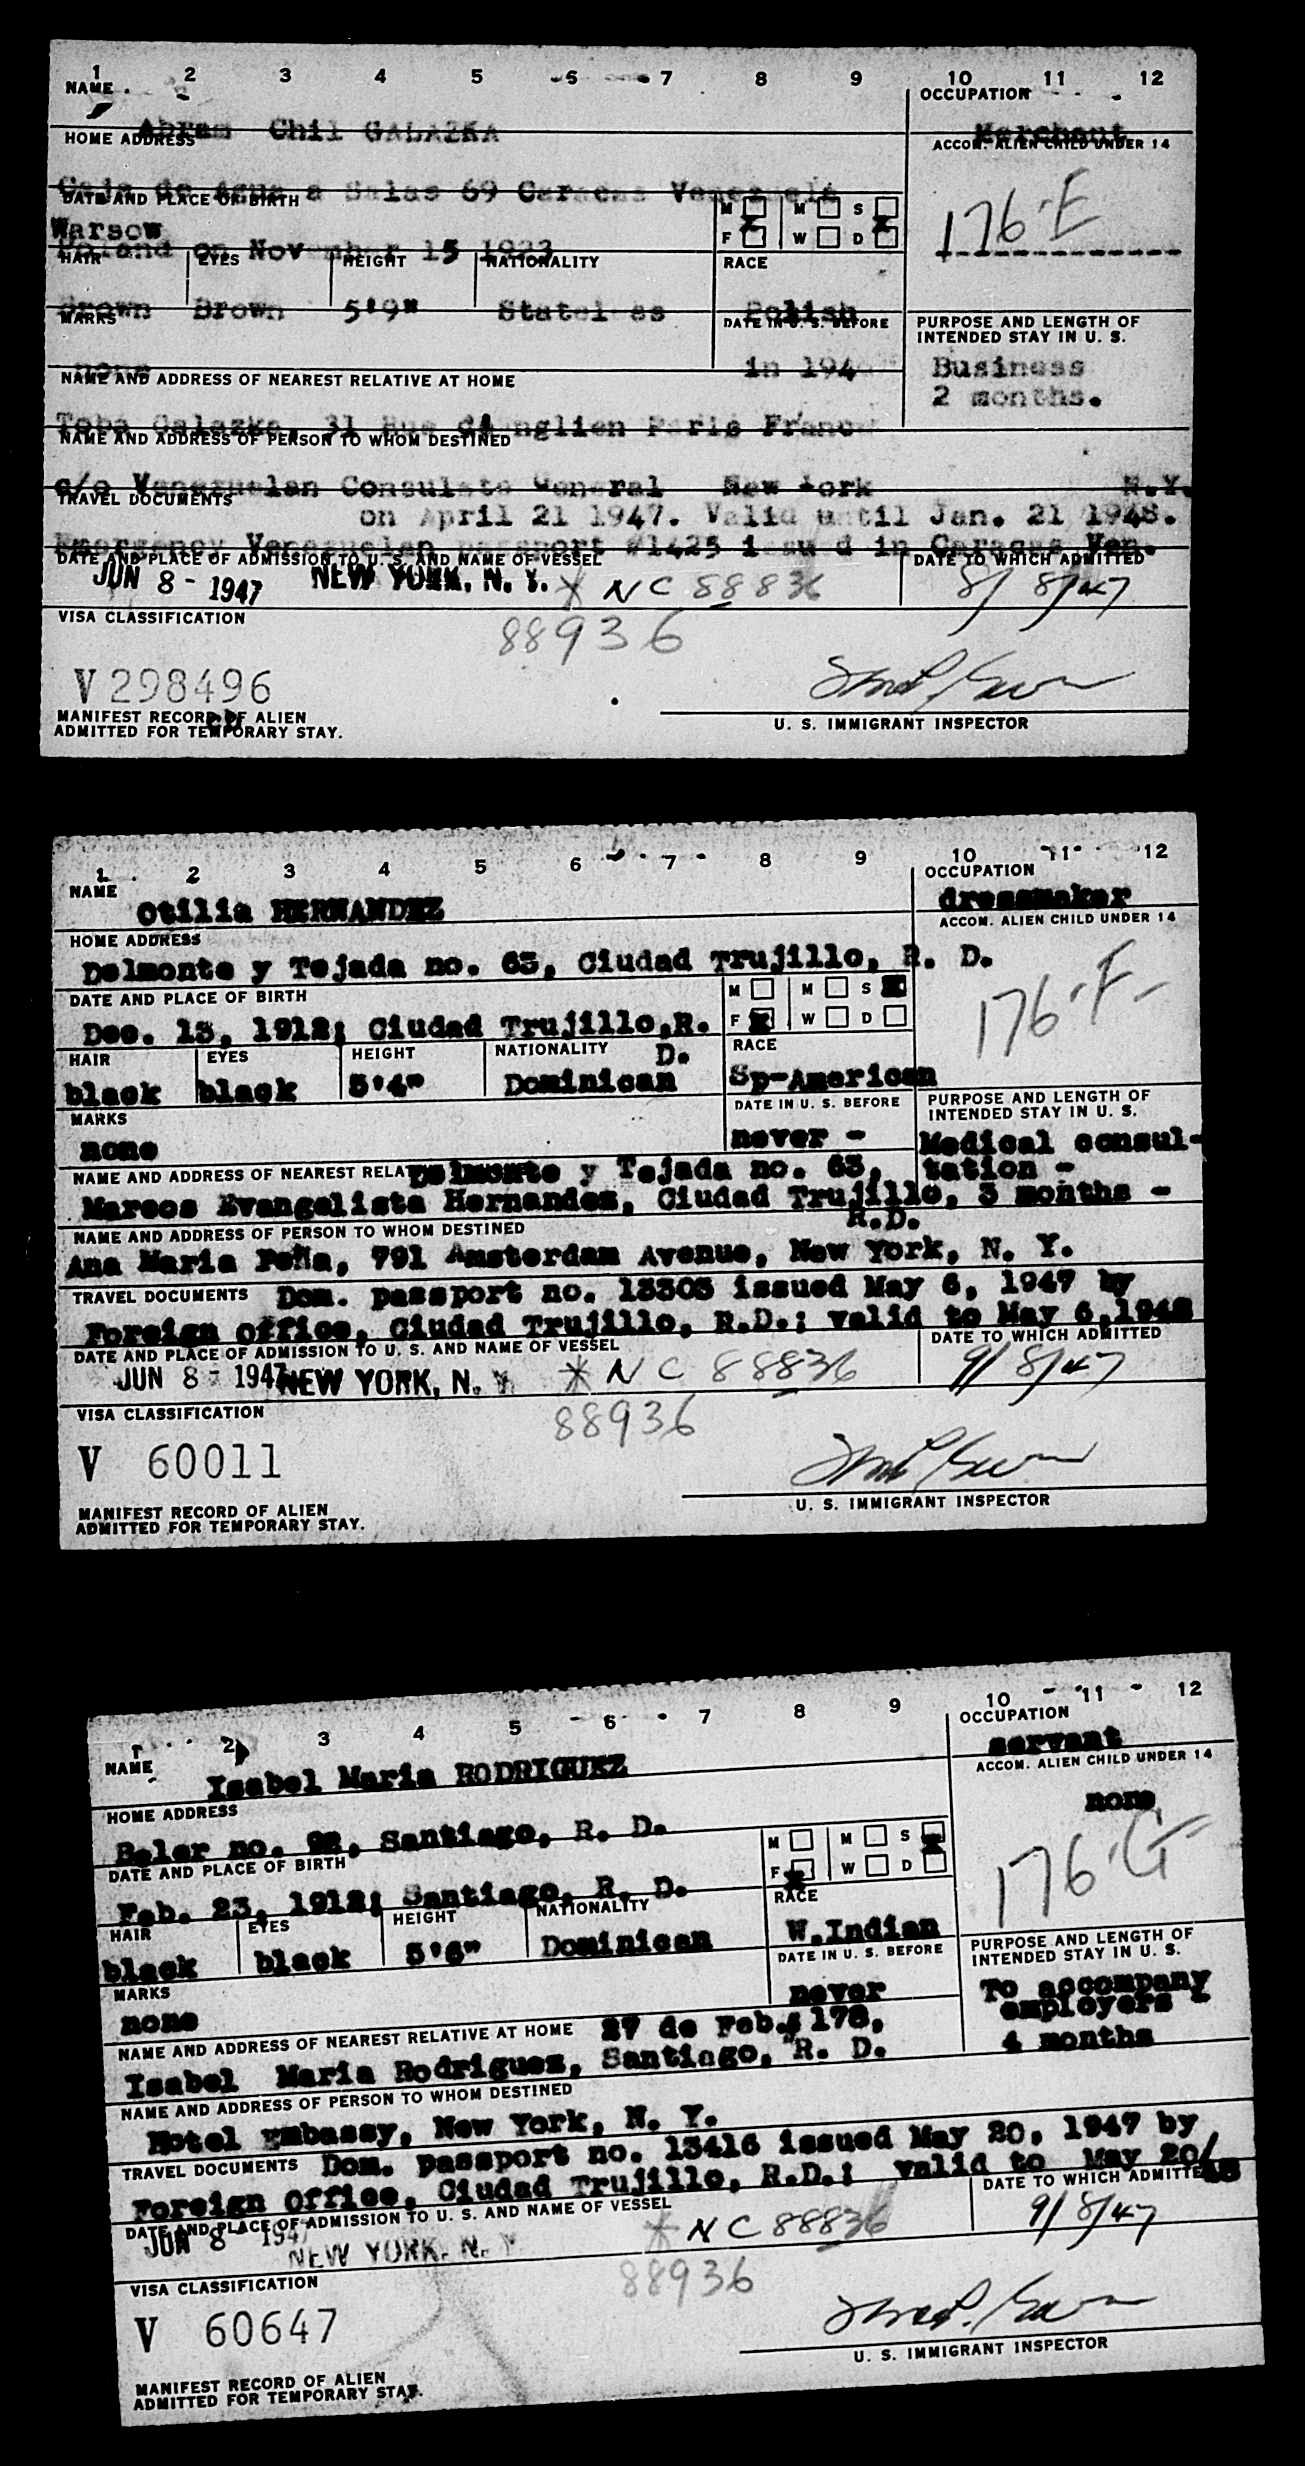 1 2 3 4 5 6 7 8 9 10 11 12
NAME
OCCUPATION
Abram Chil GALAZKA
Merchant
HOME ADDRESS
ACCOM. ALIEN CHILD UNDER 14
Caja de Agua a Salas 69 Caracas Venezuela
176-E
DATE AND PLACE OF BIRTH
M M S
F W D
Warsow
Poland on November 15 1923
HAIR EYES HEIGHT NATIONALITY RACE
Brown Brown 5'9" Stateless Polish
MARKS
DATE IN U. S. BEFORE
PURPOSE AND LENGTH OF
INTENDED STAY IN U. S.
none
in 194
Business
2 months.
NAME AND ADDRESS OF NEAREST RELATIVE AT HOME
Toba Galazka, 31 Rue Paris France
NAME AND ADDRESS OF PERSON TO WHOM DESTINED
c/o Venezuelan Consulate General New York N.Y.
TRAVEL DOCUMENTS
on April 21 1947. Valid until Jan. 21 1948.
Emergency Venezuelan passport #1425 issued in Caracas Ven.
DATE AND PLACE OF ADMISSION TO U. S. AND NAME OF VESSEL
DATE TO WHICH ADMITTED
JUN 8 - 1947 NEW YORK, N. Y. * NC 88836
8/8/47
VISA CLASSIFICATION
88936
V 298496
MANIFEST RECORD OF ALIEN
ADMITTED FOR TEMPORARY STAY.
U. S. IMMIGRANT INSPECTOR
1 2 3 4 5 6 7 8 9 10 11 12
NAME
OCCUPATION
Otilia HERNANDEZ
dressmaker
HOME ADDRESS
ACCOM. ALIEN CHILD UNDER 14
Delmonte y Tejada no. 63, Ciudad Trujillo, R. D.
176-F-
DATE AND PLACE OF BIRTH
M M S
F W D
Dec. 13, 1912; Ciudad Trujillo,R.
D.
HAIR EYES HEIGHT NATIONALITY RACE
black black 5'4" Dominican Sp-American
MARKS
DATE IN U. S. BEFORE
PURPOSE AND LENGTH OF
INTENDED STAY IN U. S.
none
never -
Medical consul-
tation -
3 months -
NAME AND ADDRESS OF NEAREST RELA Delmonte y Tejada no. 63,
Marcos Evangelista Hernandez, Ciudad Trujillo,
R.D.
NAME AND ADDRESS OF PERSON TO WHOM DESTINED
Ana Maria Peña, 791 Amsterdam Avenue, New York, N. Y.
TRAVEL DOCUMENTS Dom. passport no. 13303 issued May 6, 1947 by
Foreign office, Ciudad Trujillo, R.D.; valid to May 6,1948
DATE AND PLACE OF ADMISSION TO U. S. AND NAME OF VESSEL
DATE TO WHICH ADMITTED
JUN 8 - 1947 NEW YORK, N. Y. * NC 88836
9/8/47
VISA CLASSIFICATION
88936
V 60011
MANIFEST RECORD OF ALIEN
ADMITTED FOR TEMPORARY STAY.
U. S. IMMIGRANT INSPECTOR
1 2 3 4 5 6 7 8 9 10 11 12
NAME
OCCUPATION
Isabel Maria RODRIGUEZ
servant
HOME ADDRESS
ACCOM. ALIEN CHILD UNDER 14
Beler no. 92, Santiago, R. D.
none
176-G-
DATE AND PLACE OF BIRTH
M M S
F W D
Feb. 23, 1912; Santiago, R. D.
HAIR EYES HEIGHT NATIONALITY RACE
black black 5'6" Dominican W.Indian
MARKS
DATE IN U. S. BEFORE
PURPOSE AND LENGTH OF
INTENDED STAY IN U. S.
none
never
To accompany
employers -
4 months
NAME AND ADDRESS OF NEAREST RELATIVE AT HOME 27 de Feb. # 178,
Isabel Maria Rodriguez, Santiago, R. D.
NAME AND ADDRESS OF PERSON TO WHOM DESTINED
Hotel Embassy, New York, N. Y.
TRAVEL DOCUMENTS Dom. passport no. 13416 issued May 20, 1947 by
Foreign Office, Ciudad Trujillo, R.D.; valid to May 20/48
DATE AND PLACE OF ADMISSION TO U. S. AND NAME OF VESSEL
DATE TO WHICH ADMITTED
JUN 8 1947 NEW YORK, N. Y. * NC 88836
9/8/47
VISA CLASSIFICATION
88936
V 60647
MANIFEST RECORD OF ALIEN
ADMITTED FOR TEMPORARY STAY.
U. S. IMMIGRANT INSPECTOR